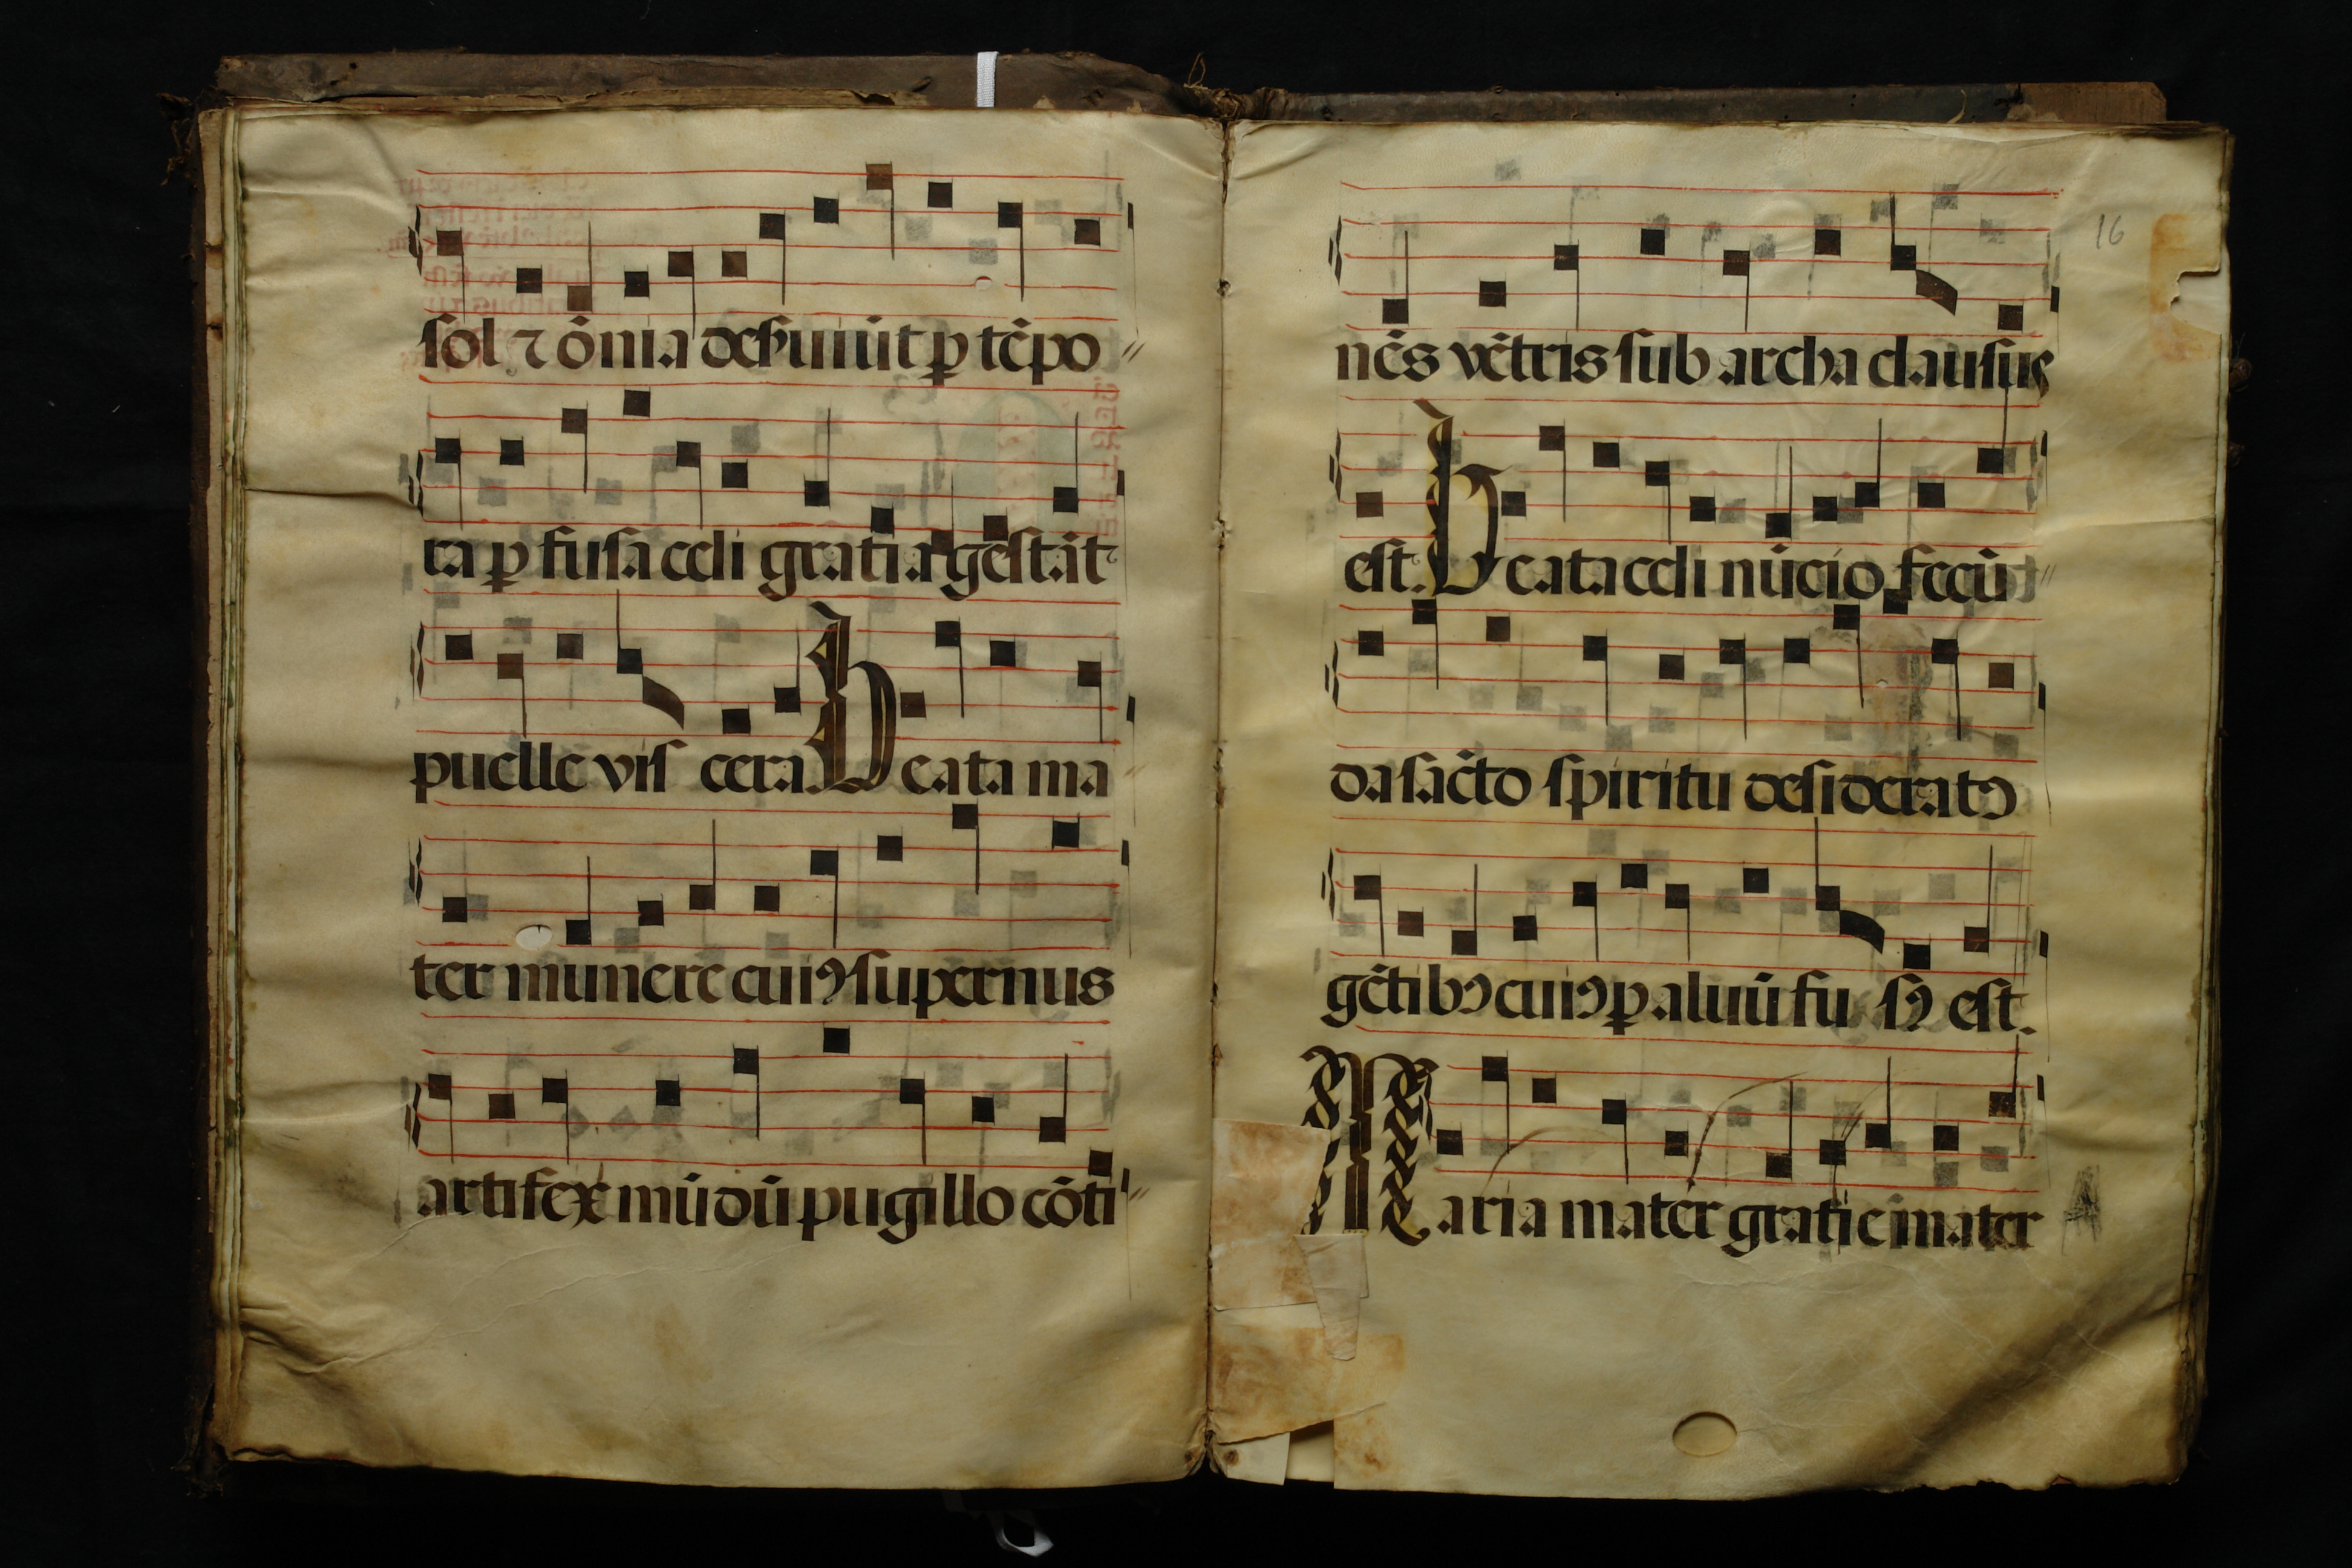 sol ⁊ ōnia deſuniūt ꝑ tēpo //
ra ꝑ fusa celi gratia gestāt
puelle vis cera Beata ma //
ter munere cuiꝰ supernus
artifex mūdū pugillo cōti //
16
nēs vētris sub archa clausus
est. Beata celi nūcio fecū //
da sācto spiritu desideratꝰ
gētibꝰ cuiꝰ ꝑ aluū fu sꝰ est.
Maria mater gratie mater